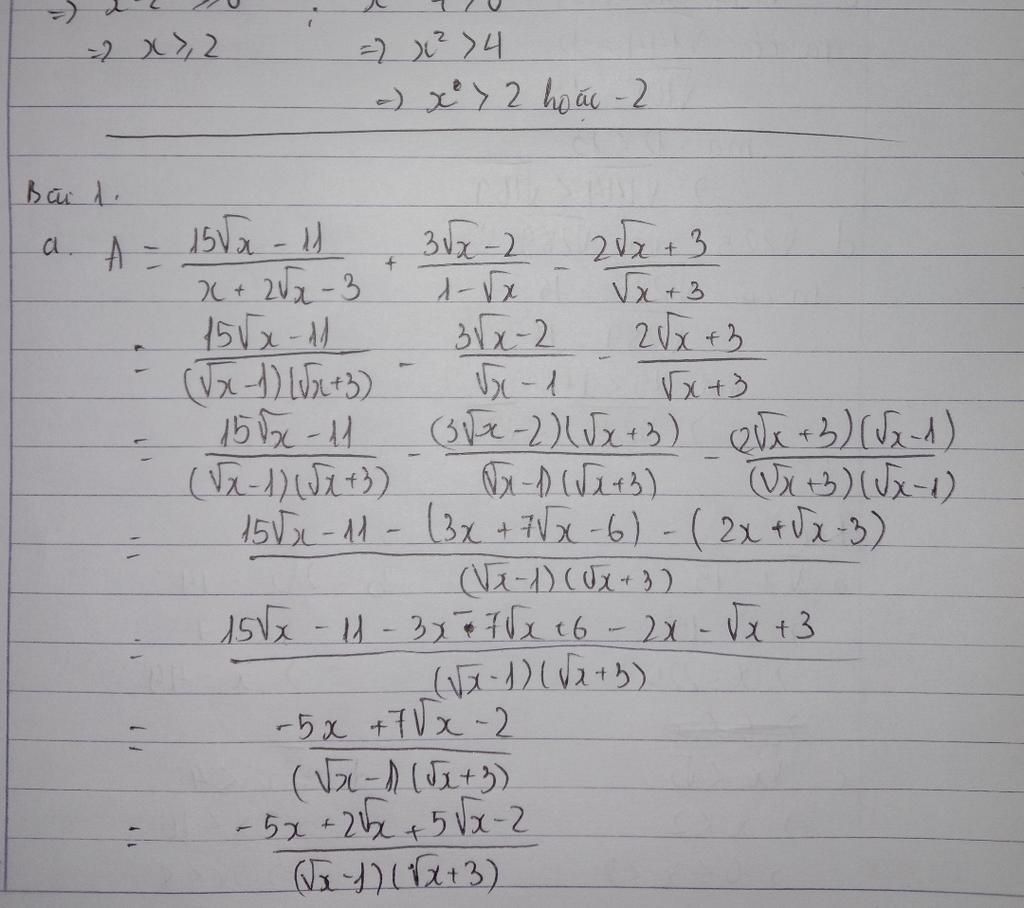 => x-2 ≥ 0 ; x² - 4 > 0
=> x ≥ 2 => x² > 4
=> x > 2 hoặc -2
Bài 1.
a. A = (15√x - 11)/(x + 2√x - 3) + (3√x - 2)/(1 - √x) - (2√x + 3)/(√x + 3)
= (15√x - 11)/((√x - 1)(√x + 3)) - (3√x - 2)/(√x - 1) - (2√x + 3)/(√x + 3)
= (15√x - 11)/((√x - 1)(√x + 3)) - ((3√x - 2)(√x + 3))/((√x - 1)(√x + 3)) - ((2√x + 3)(√x - 1))/((√x + 3)(√x - 1))
= (15√x - 11 - (3x + 7√x - 6) - (2x + √x - 3))/((√x - 1)(√x + 3))
= (15√x - 11 - 3x - 7√x + 6 - 2x - √x + 3)/((√x - 1)(√x + 3))
= (-5x + 7√x - 2)/((√x - 1)(√x + 3))
= (-5x + 2√x + 5√x - 2)/((√x - 1)(√x + 3))